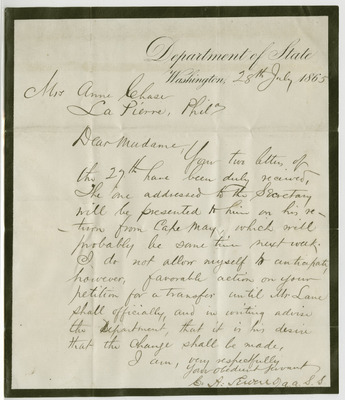 Department of State
Washington, 28th July 1865
Mrs Anne Chase
La Pierre, Phila
Dear Madame,
Your two letters of
the 27th have been duly received,
The one addressed to the Secretary
will be presented to him on his re-
turn from Cape May, which will
probably be some time next week.
I do not allow myself to anticipate,
however, favorable action on your
petition for a transfer until Mr Lane
shall officially, and in writing advise
the Department, that it is his desire
that the change shall be made,
I am, very respectfully
Your obedient servant